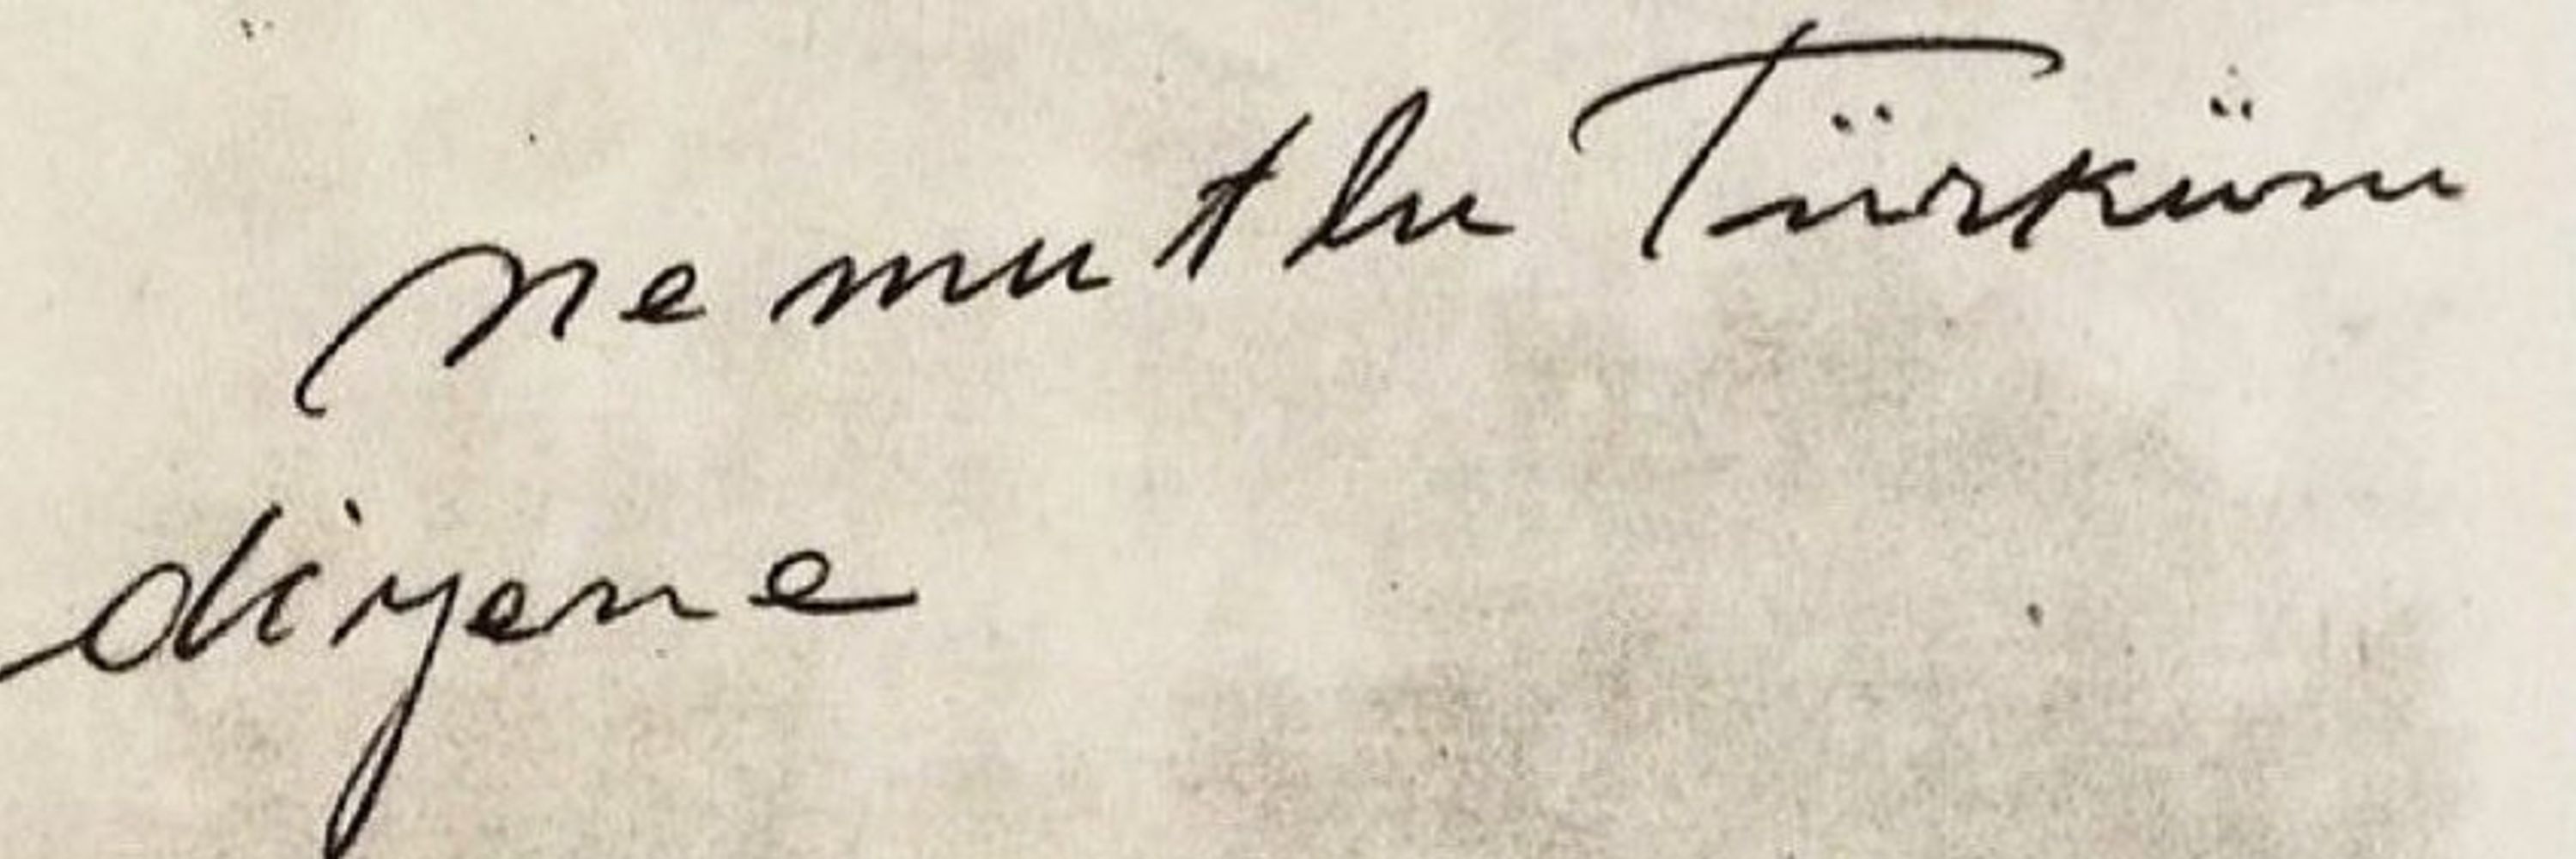 Ne mutlu Türküm
diyene